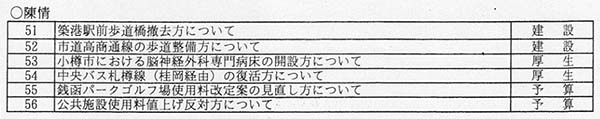 ○陳情
51 築港駅前歩道橋撤去方について 建設
52 市道高商通線の歩道整備方について 建設
53 小樽市における脳神経外科専門病床の開設方について 厚生
54 中央バス札樽線（桂岡経由）の復活方について 厚生
55 銭函パークゴルフ場使用料改定案の見直し方について 予算
56 公共施設使用料値上げ反対方について 予算